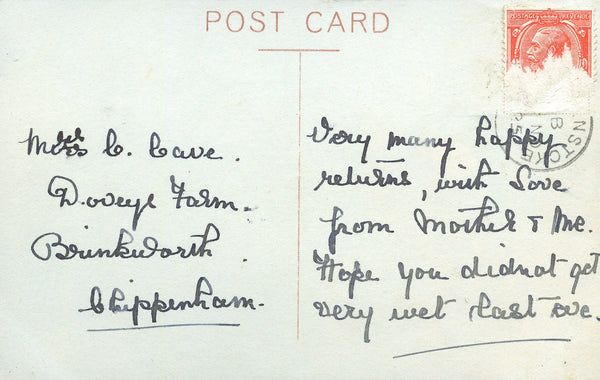 POST CARD
POSTAGE REVENUE
NSTOKE
Mrs C. Cave.
Doveys Farm.
Brinkworth.
Chippenham.
Very many happy
returns, with Love
from Mother & Me.
Hope you didnot get
very wet last eve.